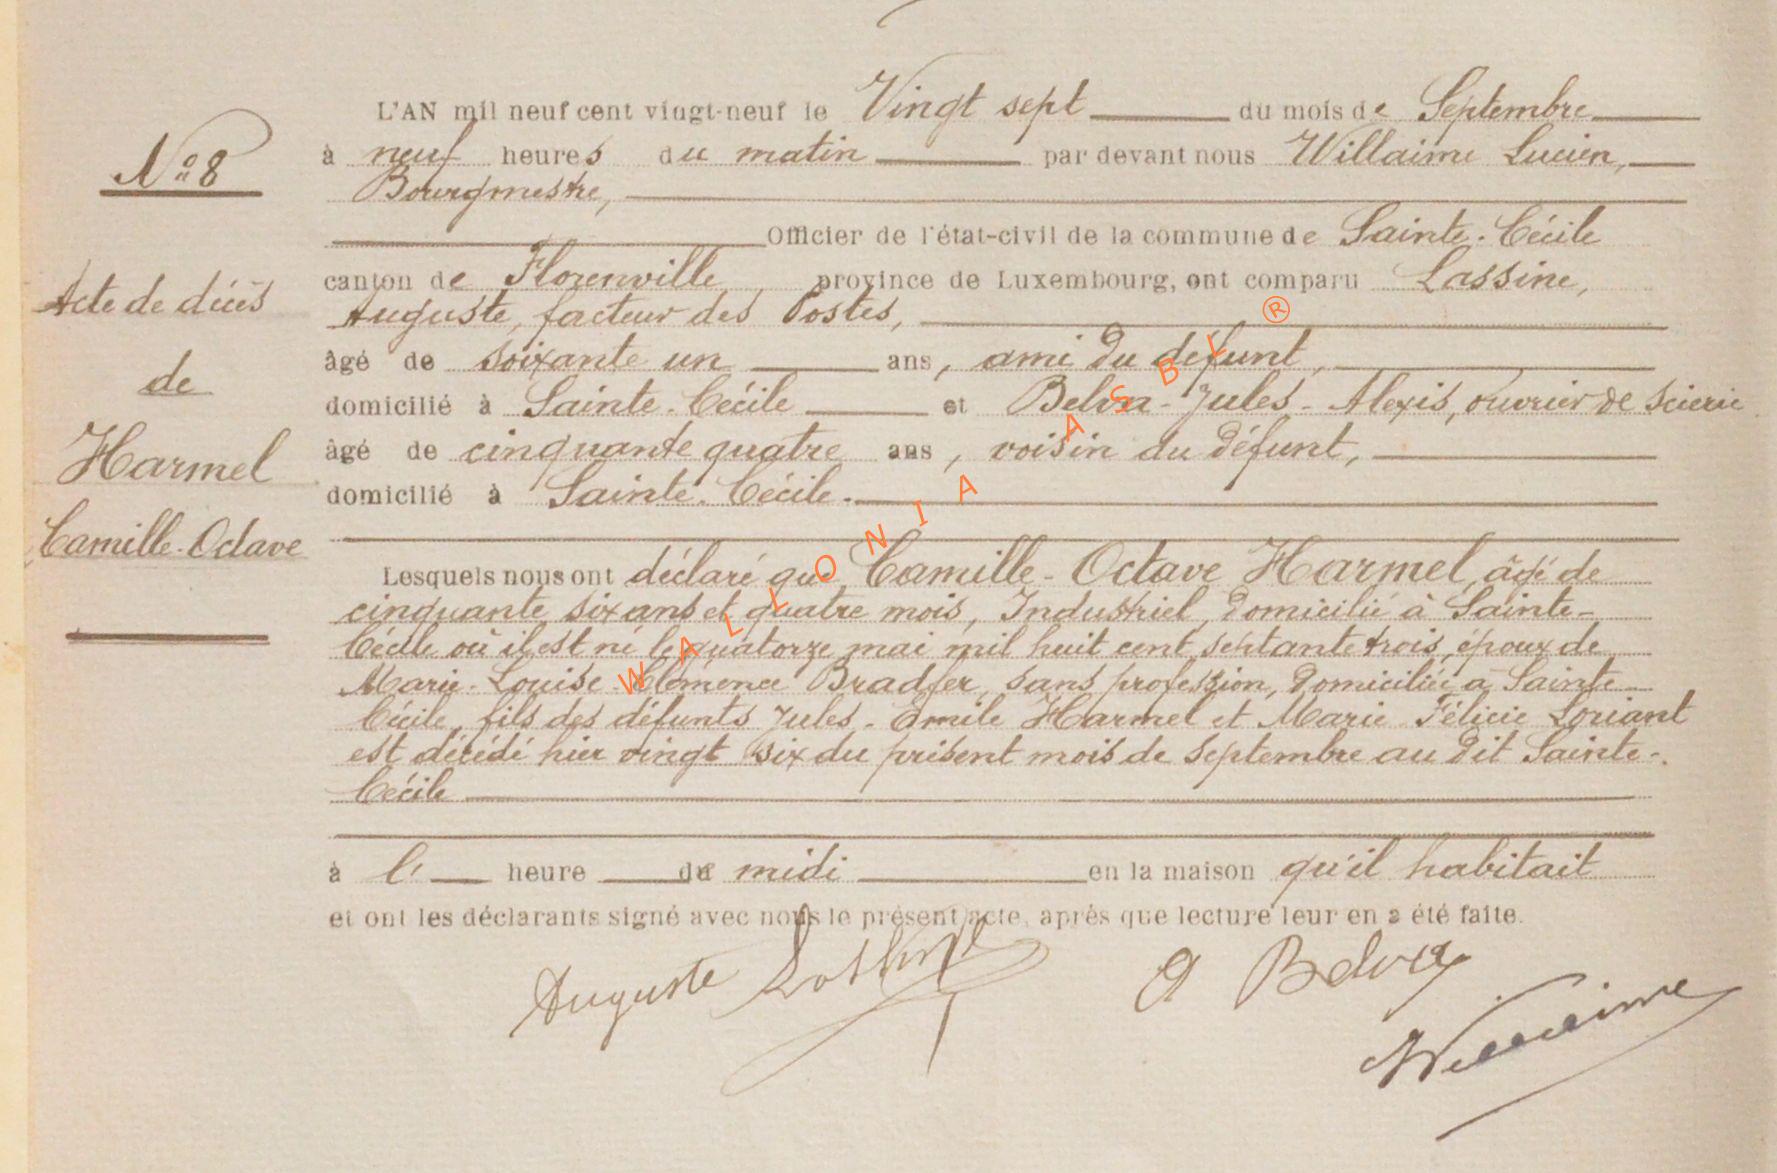 L'AN mil neuf cent vingt-neuf le Vingt sept du mois de Septembre
N° 8
à neuf heures du matin par devant nous Willaime Lucien,
Bourgmestre,
Officier de l'état-civil de la commune de Sainte-Cécile
canton de Florenville, province de Luxembourg, ont comparu Lassine,
Acte de décès
Auguste, facteur des Postes,
âgé de soixante un ans, ami du défunt,
de
domicilié à Sainte-Cécile et Belva-Jules-Alexis, ouvrier de scierie
âgé de cinquante quatre ans, voisin du défunt,
Harmel
domicilié à Sainte-Cécile.
Camille-Octave
Lesquels nous ont déclaré que Camille-Octave Harmel, âgé de
cinquante six ans et quatre mois, Industriel, domicilié à Sainte-
Cécile où il est né le quatorze mai mil huit cent septante trois, époux de
Marie-Louise-Clémence Bradfer, sans profession, domiciliée à Sainte
Cécile, fils des défunts Jules-Emile Harmel et Marie Félicie Loriant
est décédé hier vingt six du présent mois de septembre au dit Sainte-
Cécile
à heure de midi en la maison qu'il habitait
et ont les déclarants signé avec nous le présent acte, après que lecture leur en a été faite.
Auguste Lassine A Belva
Willaime
WALLONIA ASBL ®